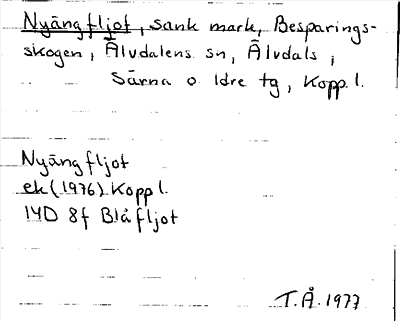 Nyängfljot, sank mark, Besparings-
skogen, Älvdalens sn, Älvdals,
Särna o Idre tg, Kopp. l.
Nyängfljot
ek (1976) Kopp l.
14D 8f Blåfljot
T.Å. 1977